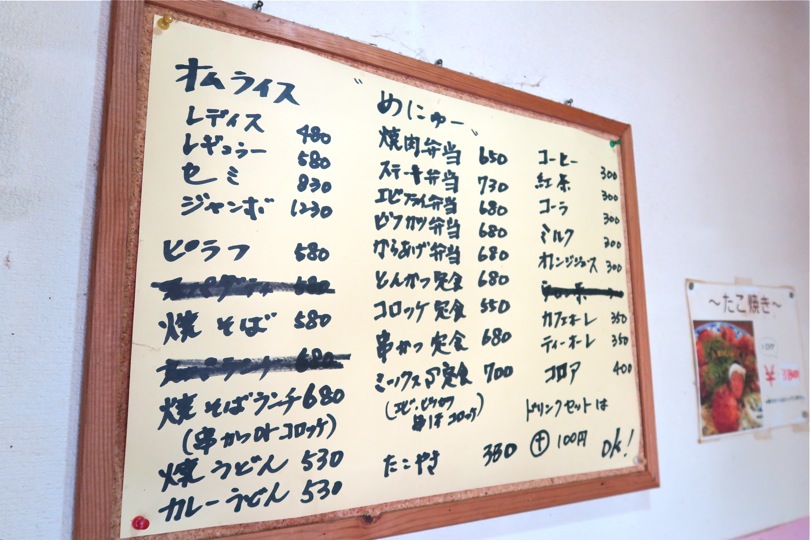 〝めにゅー〟
オムライス
レディス 480
レギュラー 580
セミ 830
ジャンボ 1230
ピラフ 580
焼そば 580
焼そばランチ 680
(串かつorコロッケ)
焼うどん 530
カレーうどん 530
焼肉弁当 650
ステーキ弁当 730
エビフライ弁当 680
ビフカツ弁当 680
からあげ弁当 680
とんかつ定食 680
コロッケ定食 550
串かつ定食 680
ミックス定食 700
たこやき 350
コーヒー 300
紅茶 300
コーラ 300
ミルク 300
オレンジジュース 300
カフェオーレ 350
ティーオーレ 350
ココア 400
ドリンクセットは
㊉100円 OK!
〜たこ焼き〜